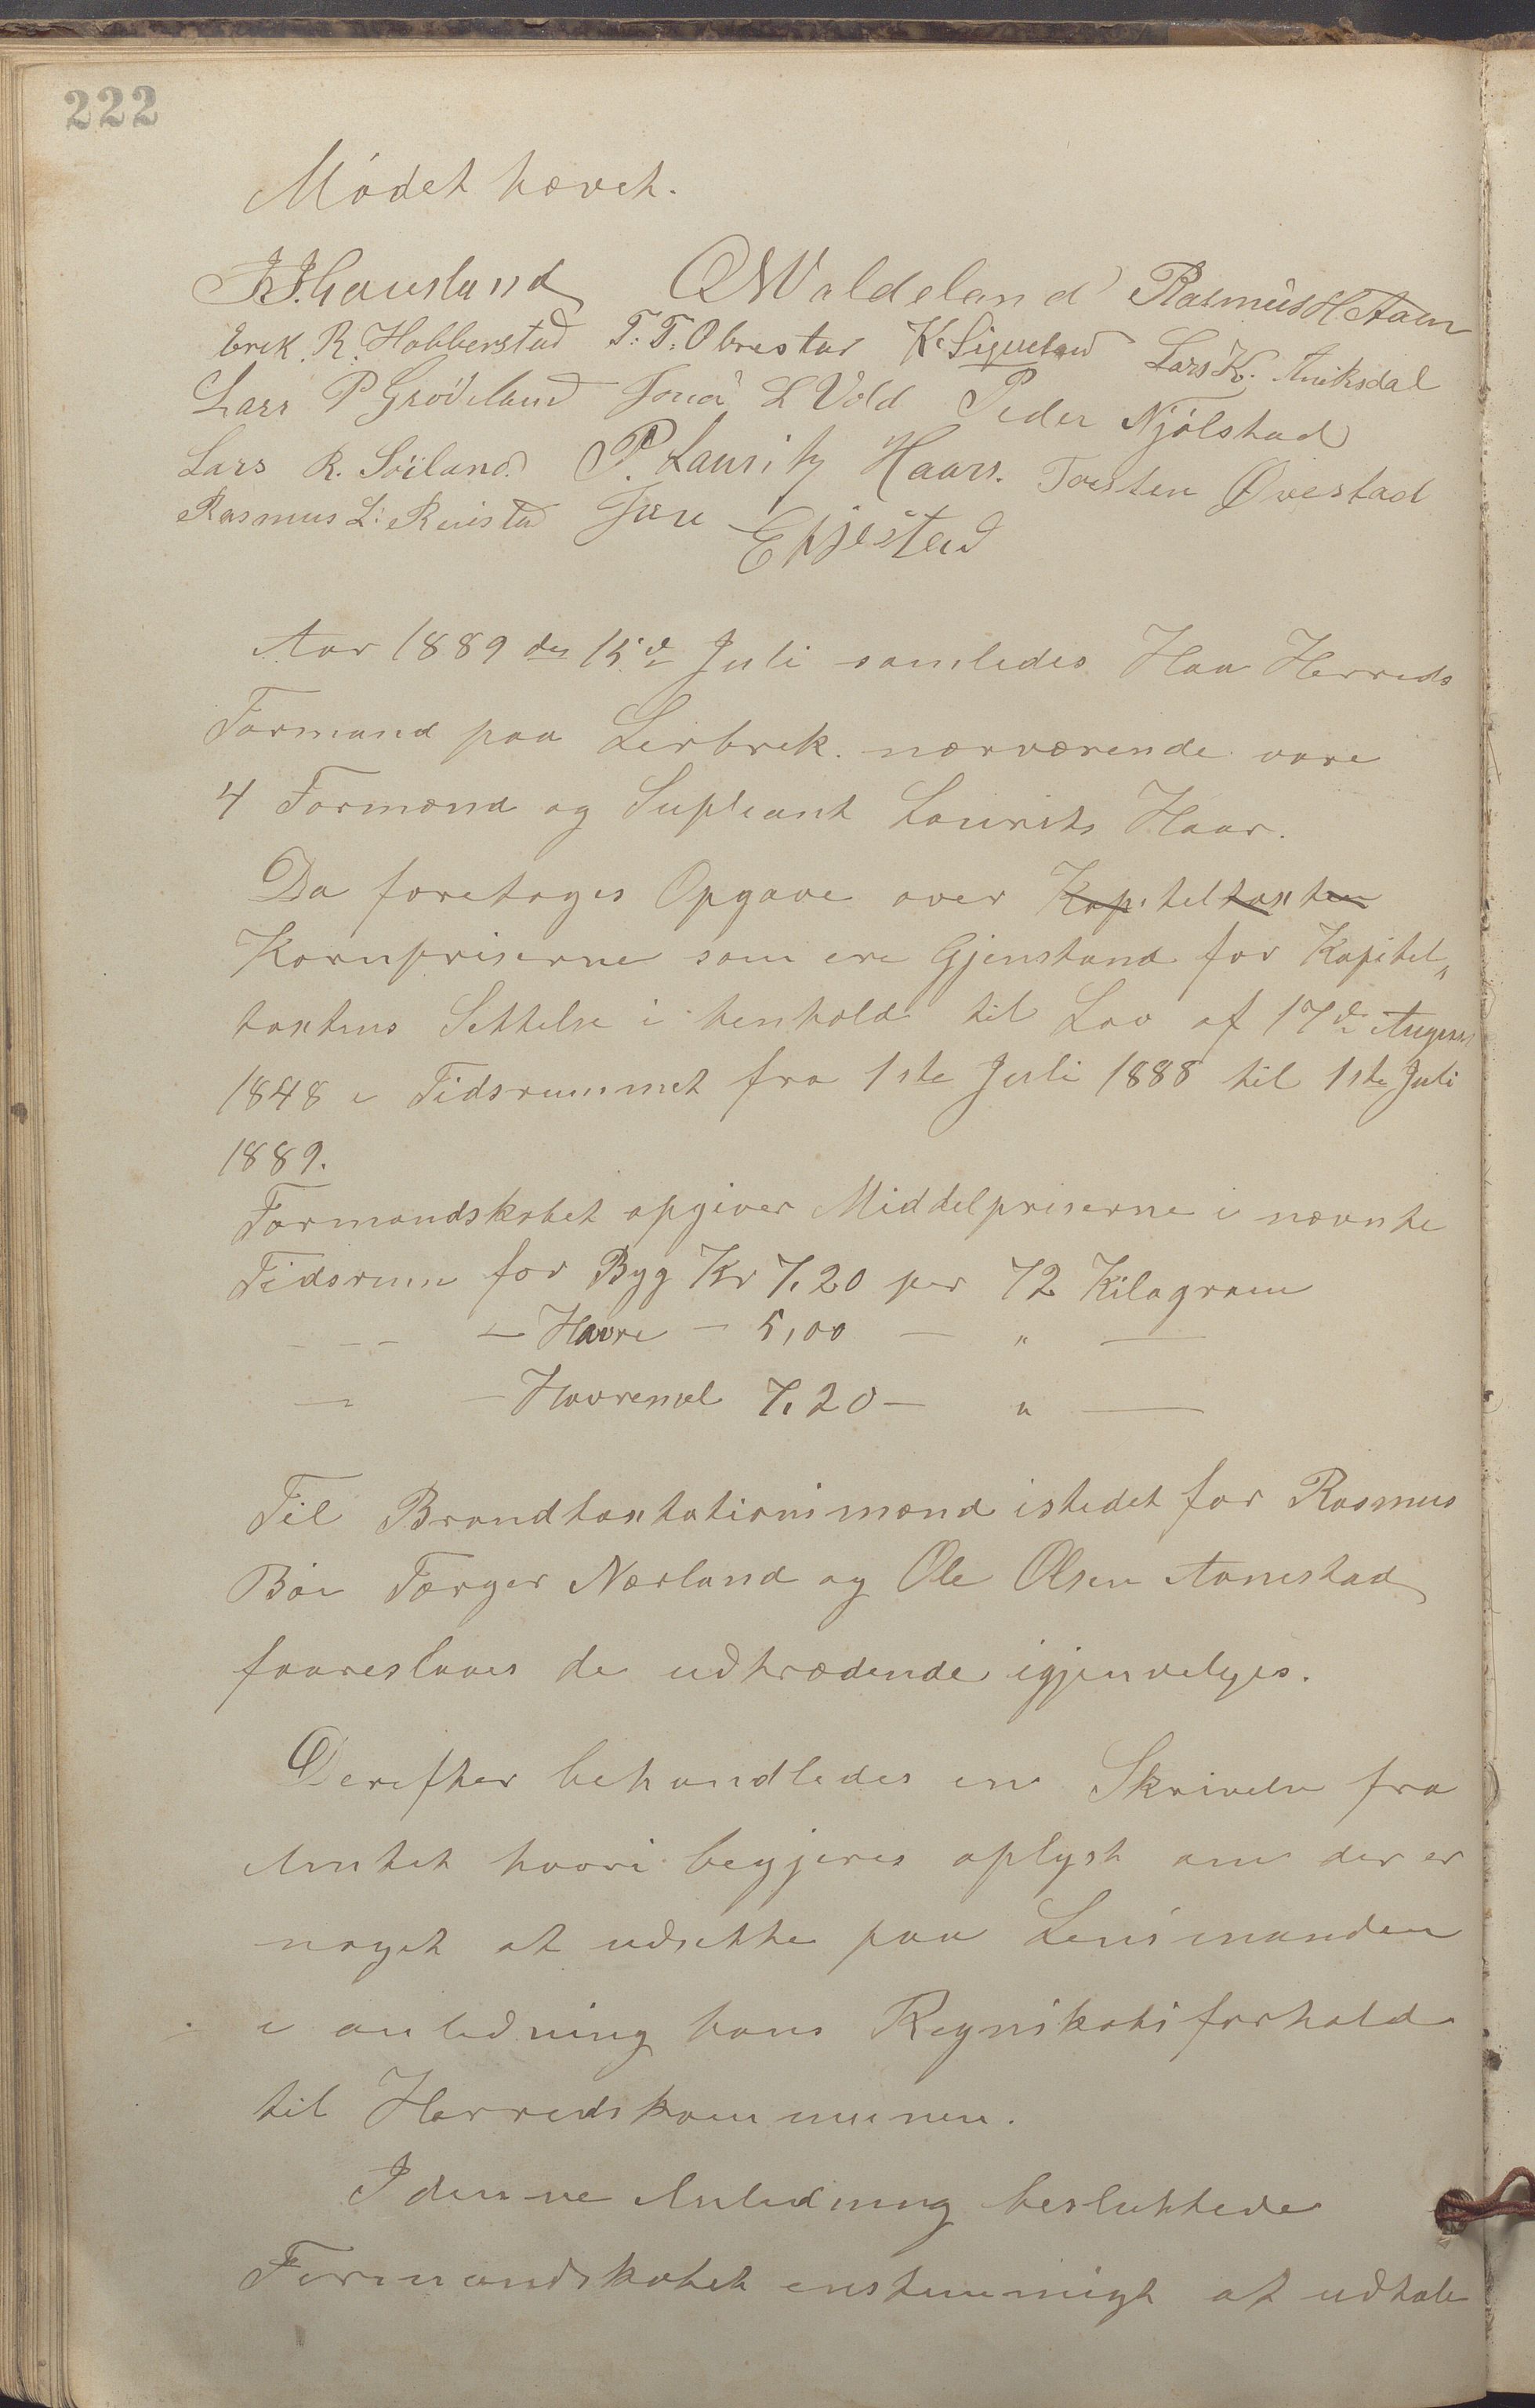 222
Mødet hævet.
Waldeland Rasmus H Aam
Erek. R. Hobberstad T. T. Obrestad K. Sigveland Lars K. Aniksdal
Lars P Grødeland Jonas L Vold Peder Njølstad
Lars R. Söiland P. Lauritz Haars. Torsten Ovestad
Rasmus L. Reistad
Aar 1889 den 15de Juli samledes Haa Herreds
Formænd paa Lerbrek. nærværende vare
4 Formænd og Supleant Laurits Haar.
Da foretoges Opgave over Kapiteltaxten
Kornpriserne som ere Gjenstand for Kapitel„
taxtens Settelse i henhold til Lov af 17de August
1848 i Tidsrummet fra 1ste Juli 1888 til 1ste Juli
1889.
Formandskabet opgiver Middelpriserne i nævnte
Tidsrum for Byg Kr 7,20 per 72 Kilogram
– – – – Havre – 5,00 – " –
– – Havremel 7,20 – " –
Til Brandtaxtationsmænd istedet for Rasmus
Bøe Torger Nærland og Ole Olsen Aanestad
foareslaaes de udtrædende igjenvelges.
Derefter behandledes en Skrivelse fra
Amtet hvori begjeres oplyst om der er
noget at udsette paa Lensmanden
i anledning hans Regnskabsforhold
til Herredskommunen.
I denne Anledning besluttede
Formandskabet enstemmigt at udtale